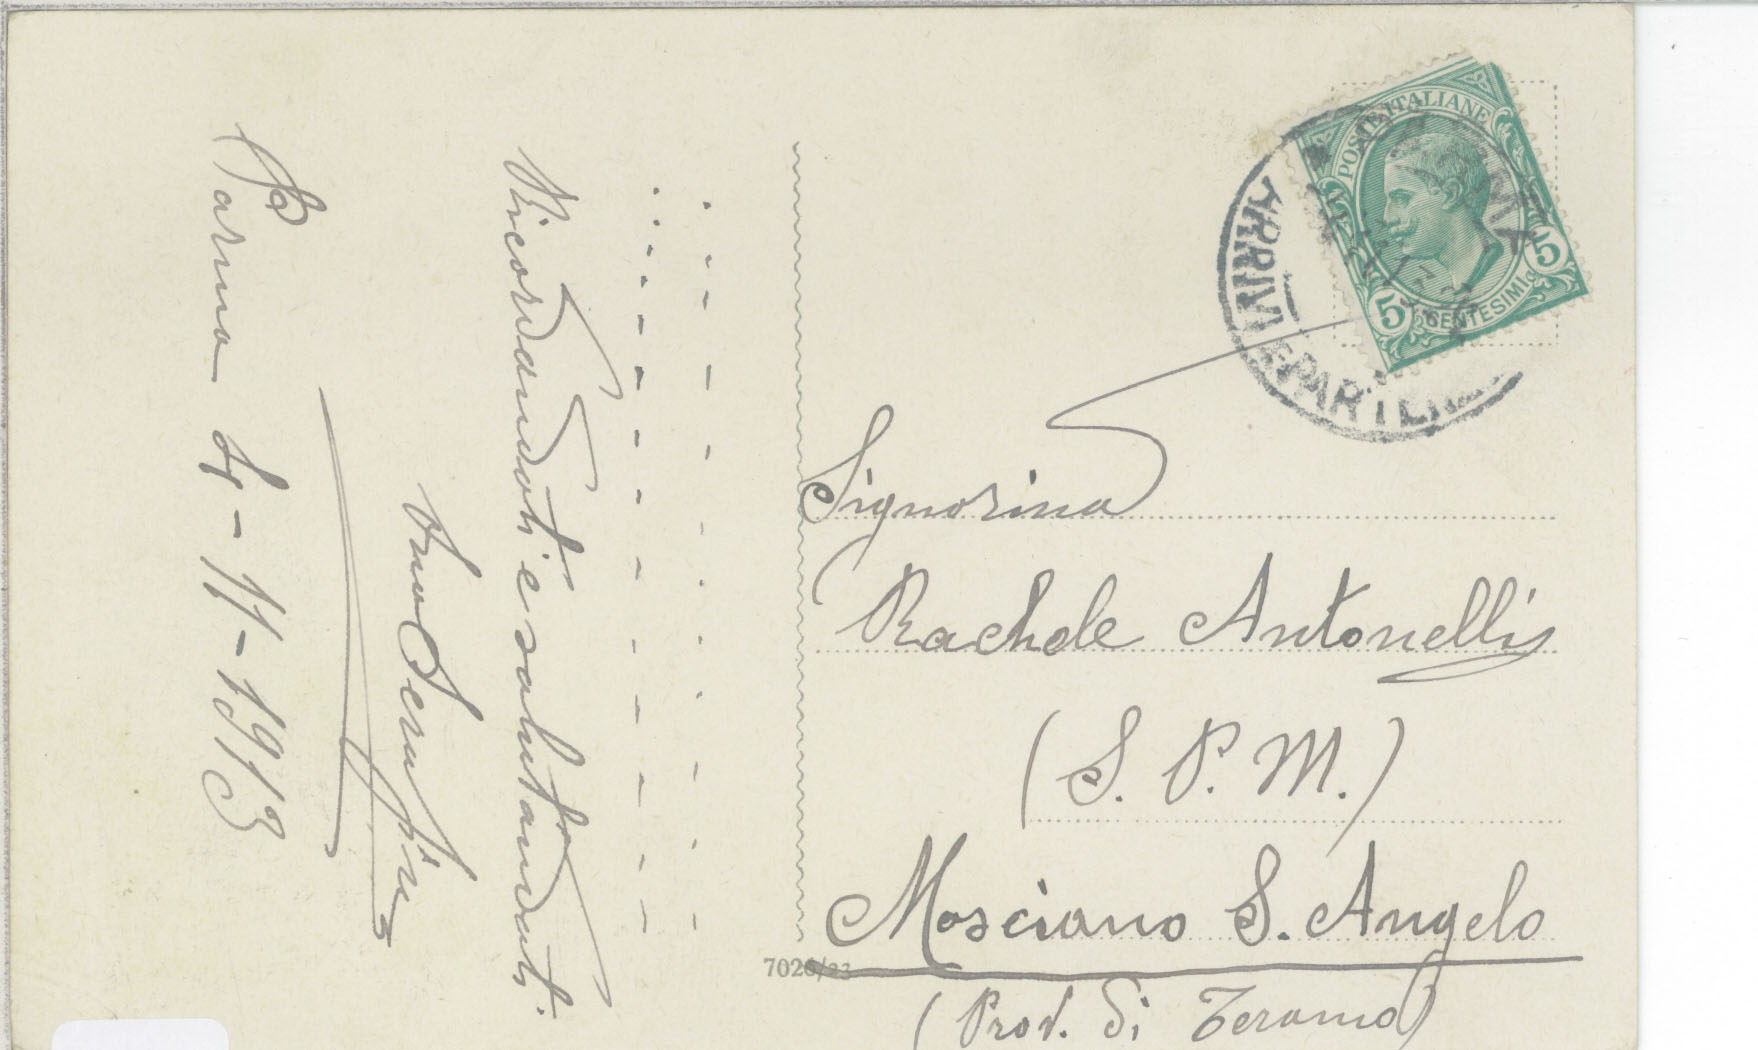 Parma 4-11-1913
Ricordandoti e salutandoti.
tuo Serafino
POSTE ITALIANE
5 CENTESIMI 5
ARRIVI E PARTENZE
Signorina
Rachele Antonelli
(S. P. M.)
Mosciano S. Angelo
(Prov. di Teramo)
7026/23